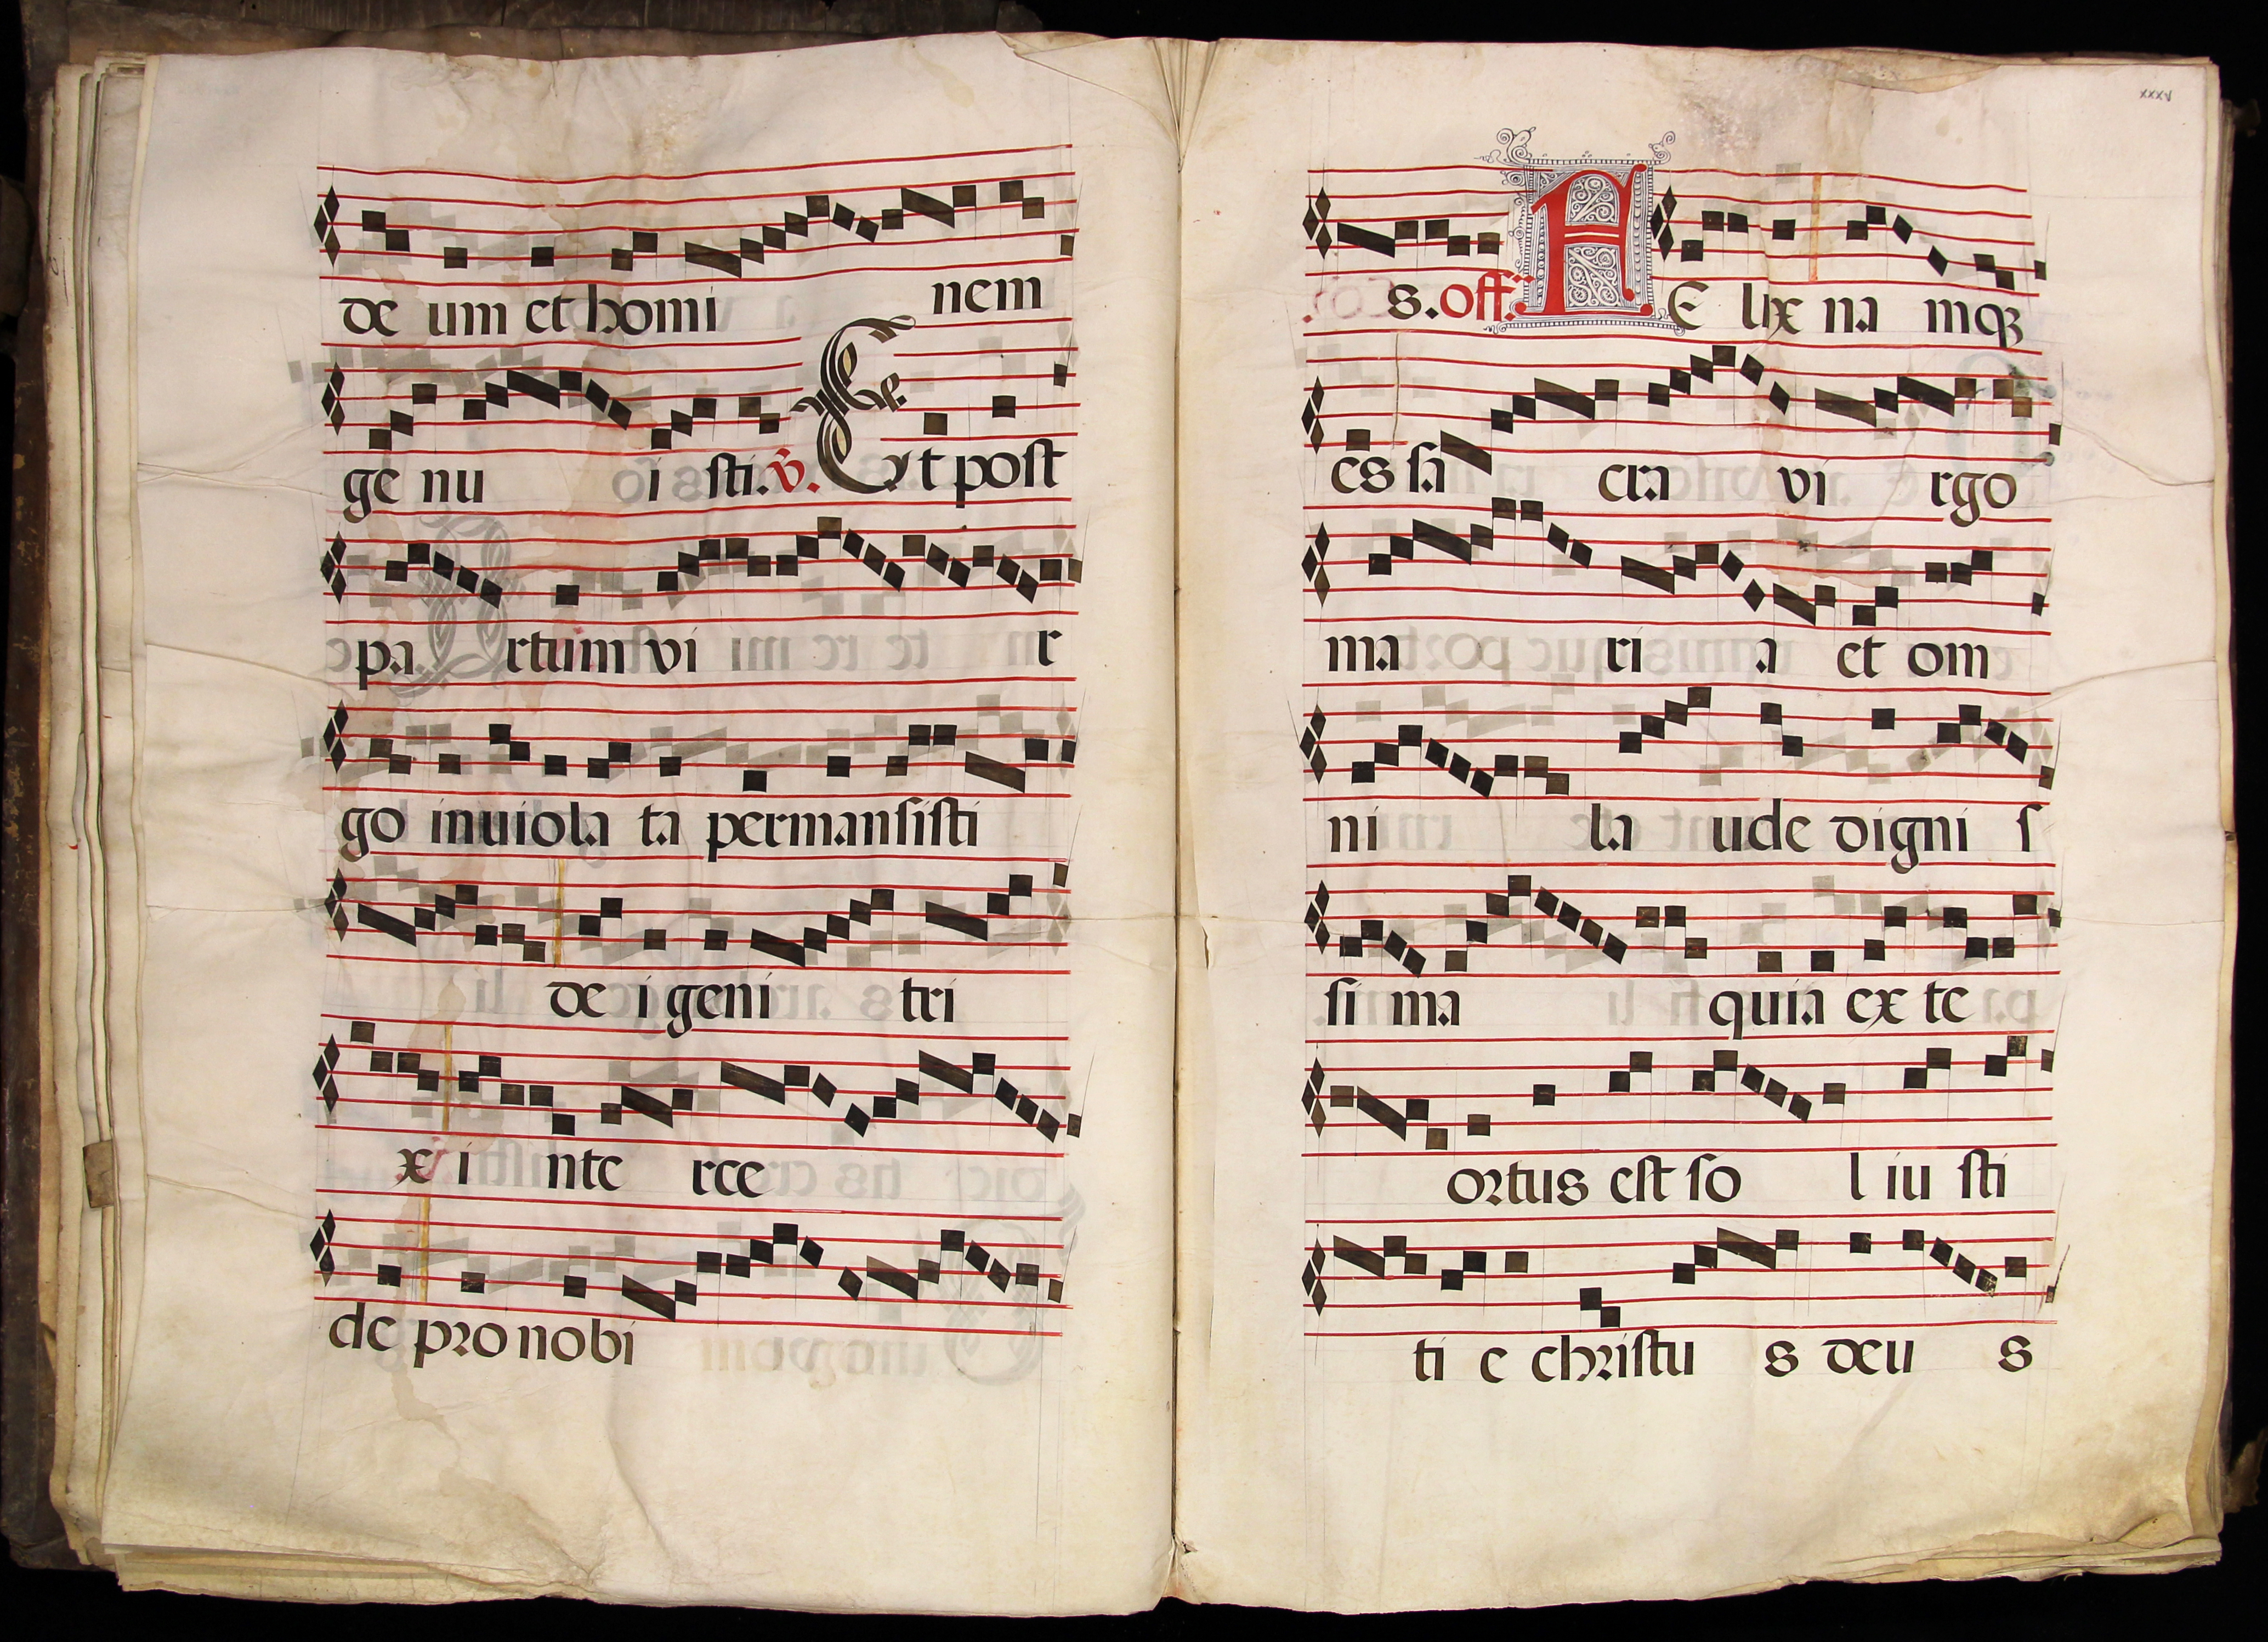 de um et homi nem
ge nu i sti. ℣. Et post
pa rtum vi r
go inuiola ta permansisti
de i geni tri
x i nte rce
de pro nobi
xxxv
s. off. FE lix na mqꝫ
es sa cra vi rgo
ma ri a et om
ni la ude digni s
si ma quia ex te
ortus est so l iu sti
ti e christu s deu s